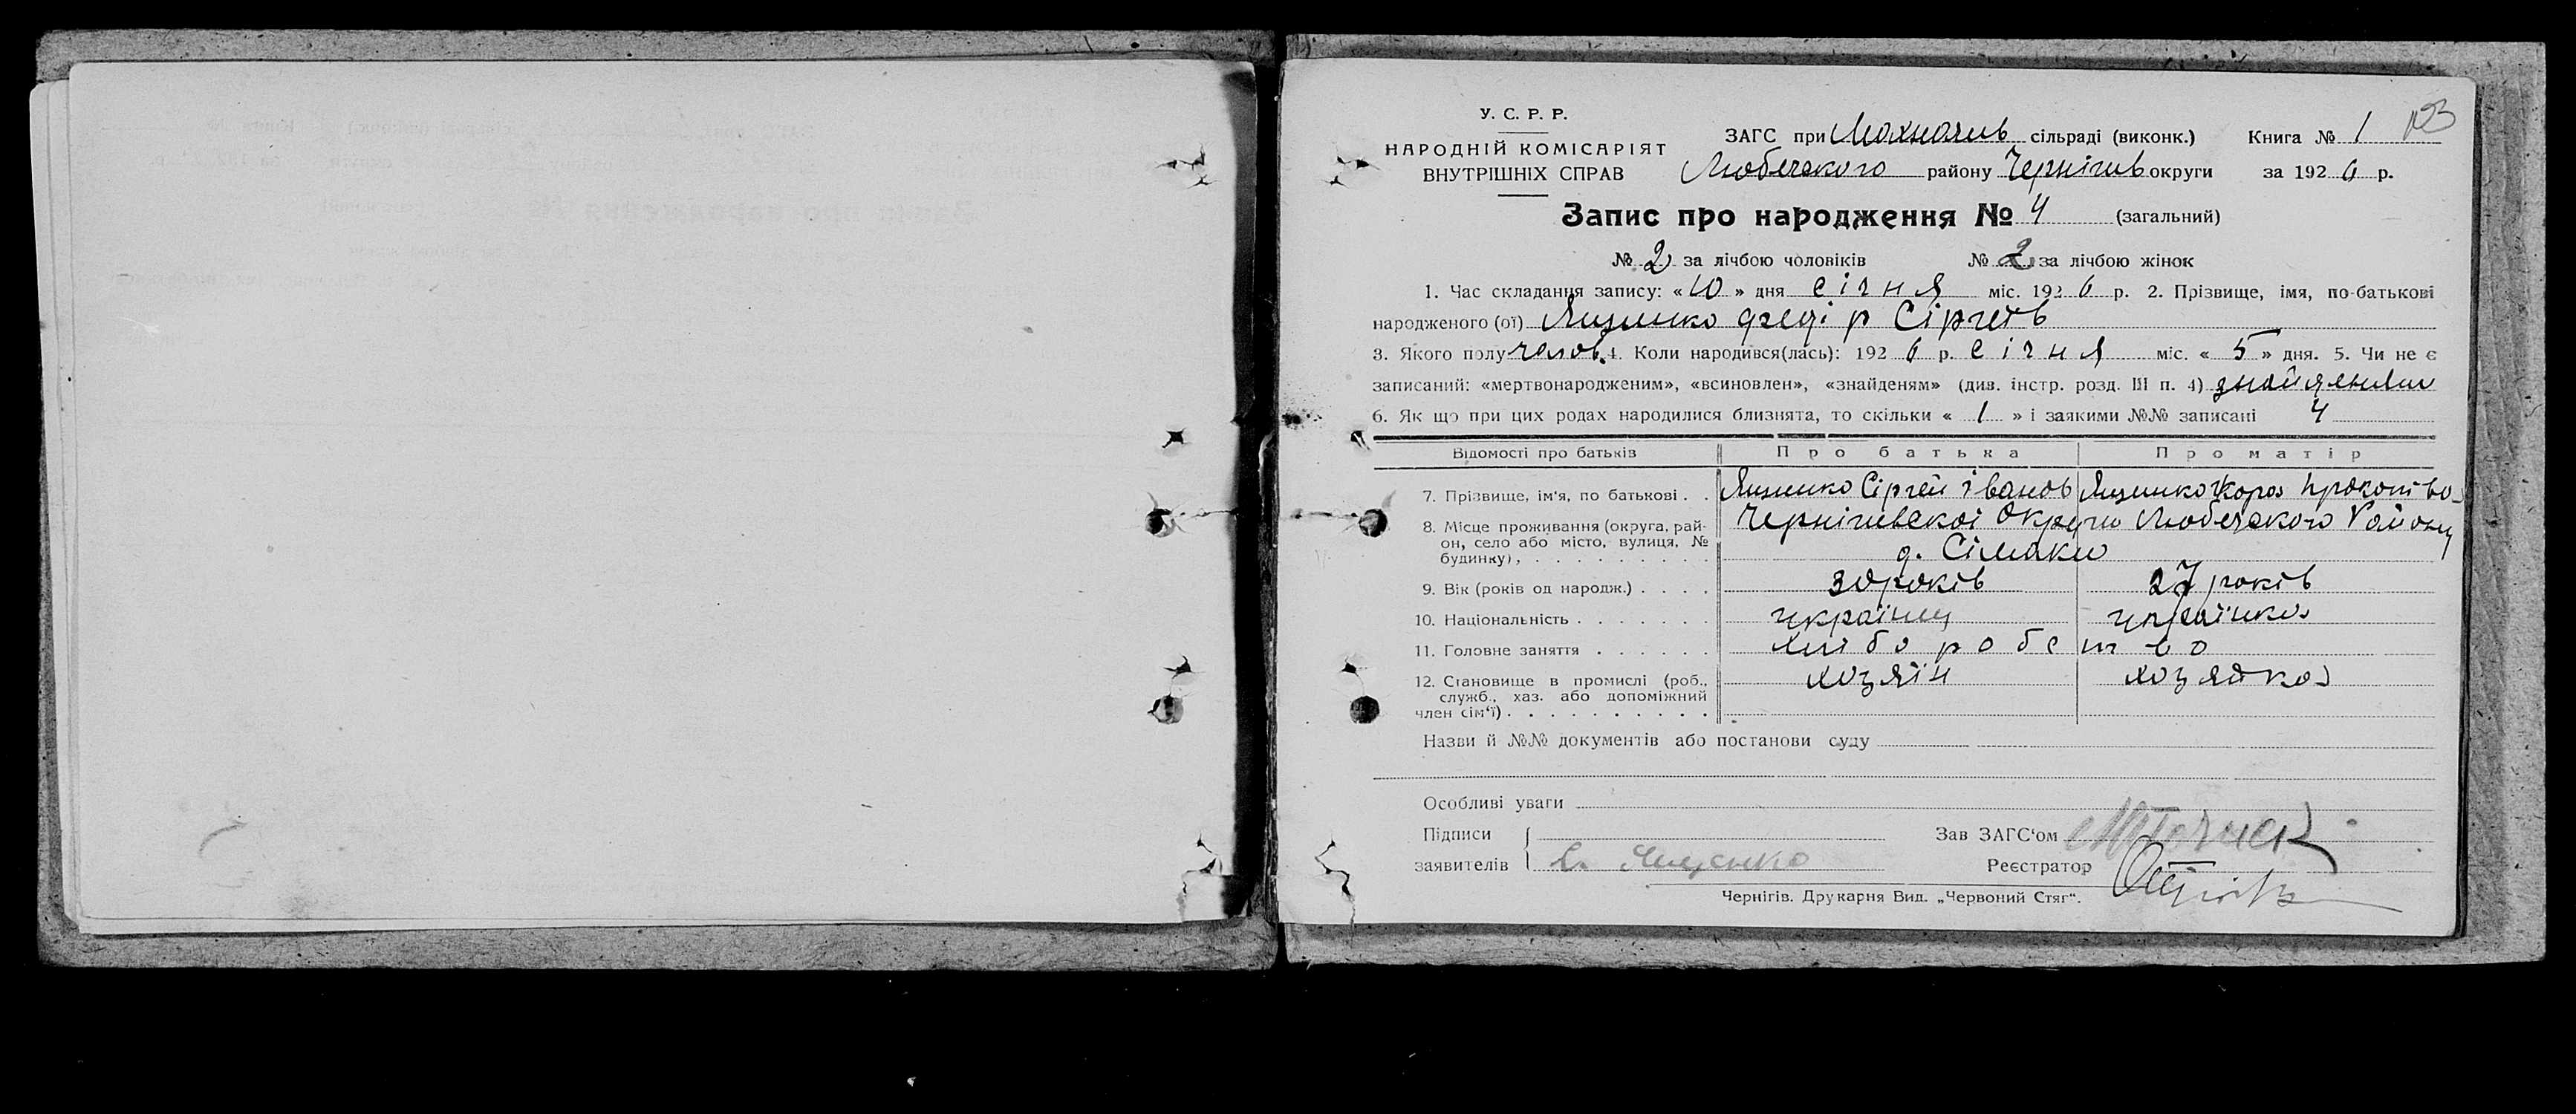 У. С. Р. Р.
НАРОДНІЙ КОМІСАРІЯТ
ВНУТРІШНІХ СПРАВ
ЗАГС при Махначив сільраді (виконк.) Книга № 1
Любечского району Чернігив округи за 1926 р.
Запис про народження № 4 (загальний)
№ 2 за лічбою чоловіків № 2 за лічбою жінок
1. Час складання запису: «10» дня січня міс. 1926 р. 2. Прізвище, імя, по-батькові
народженого (ої) Ященко Сіргеів
3. Якого полу чолов. 4. Коли народився(лась): 1926 р. січня міс. «5» дня. 5. Чи не є
записаний: «мертвонародженим», «всиновлен», «знайденям» (див. інстр. розд. III п. 4)
6. Як що при цих родах народилися близнята, то скільки «1» і заякими №№ записані 4
Відомості про батьків Про батька Про матір
7. Прізвище, ім'я, по батькові . . Ященко Сіргей Іванов Ященко
8. Місце проживання (округа, рай-
он, село або місто, вулиця, №
будинку), Чернігивскоі Округи Любечского Району
д. Сімаки
9. Вік (років од народж.) 30 років 27 років
10. Національність українец українка
11. Головне заняття хліборобство
12. Становище в промислі (роб.,
служб., хаз. або допоміжний
член сім'ї) хозяїн хозяйка
Назви й №№ документів або постанови суду
Особливі уваги
Підписи
заявителів Ященко
Зав ЗАГС'ом
Реєстратор
Чернігів. Друкарня Вид. „Червоний Стяг".